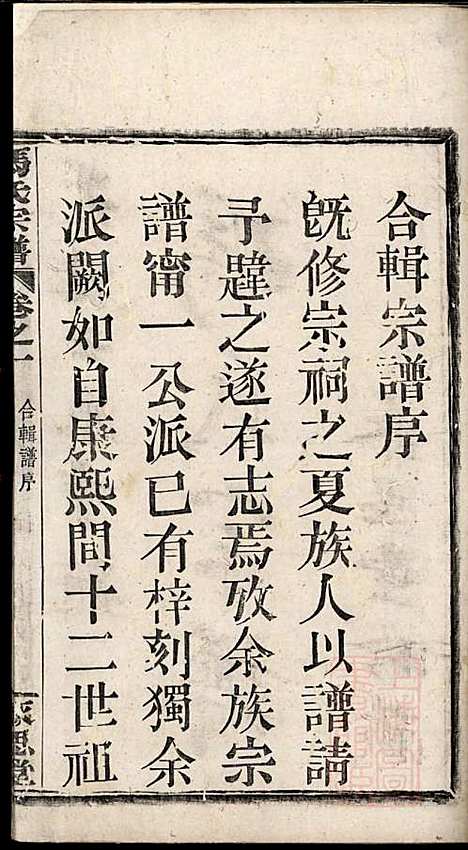 合輯宗譜序
旣修宗祠之夏族人以譜請
予韙之遂有志焉攷余族宗
譜甯一公派已有梓刻獨余
派闕如自康熙間十二世祖
馮氏宗譜
卷之一
合輯譜序
思堂